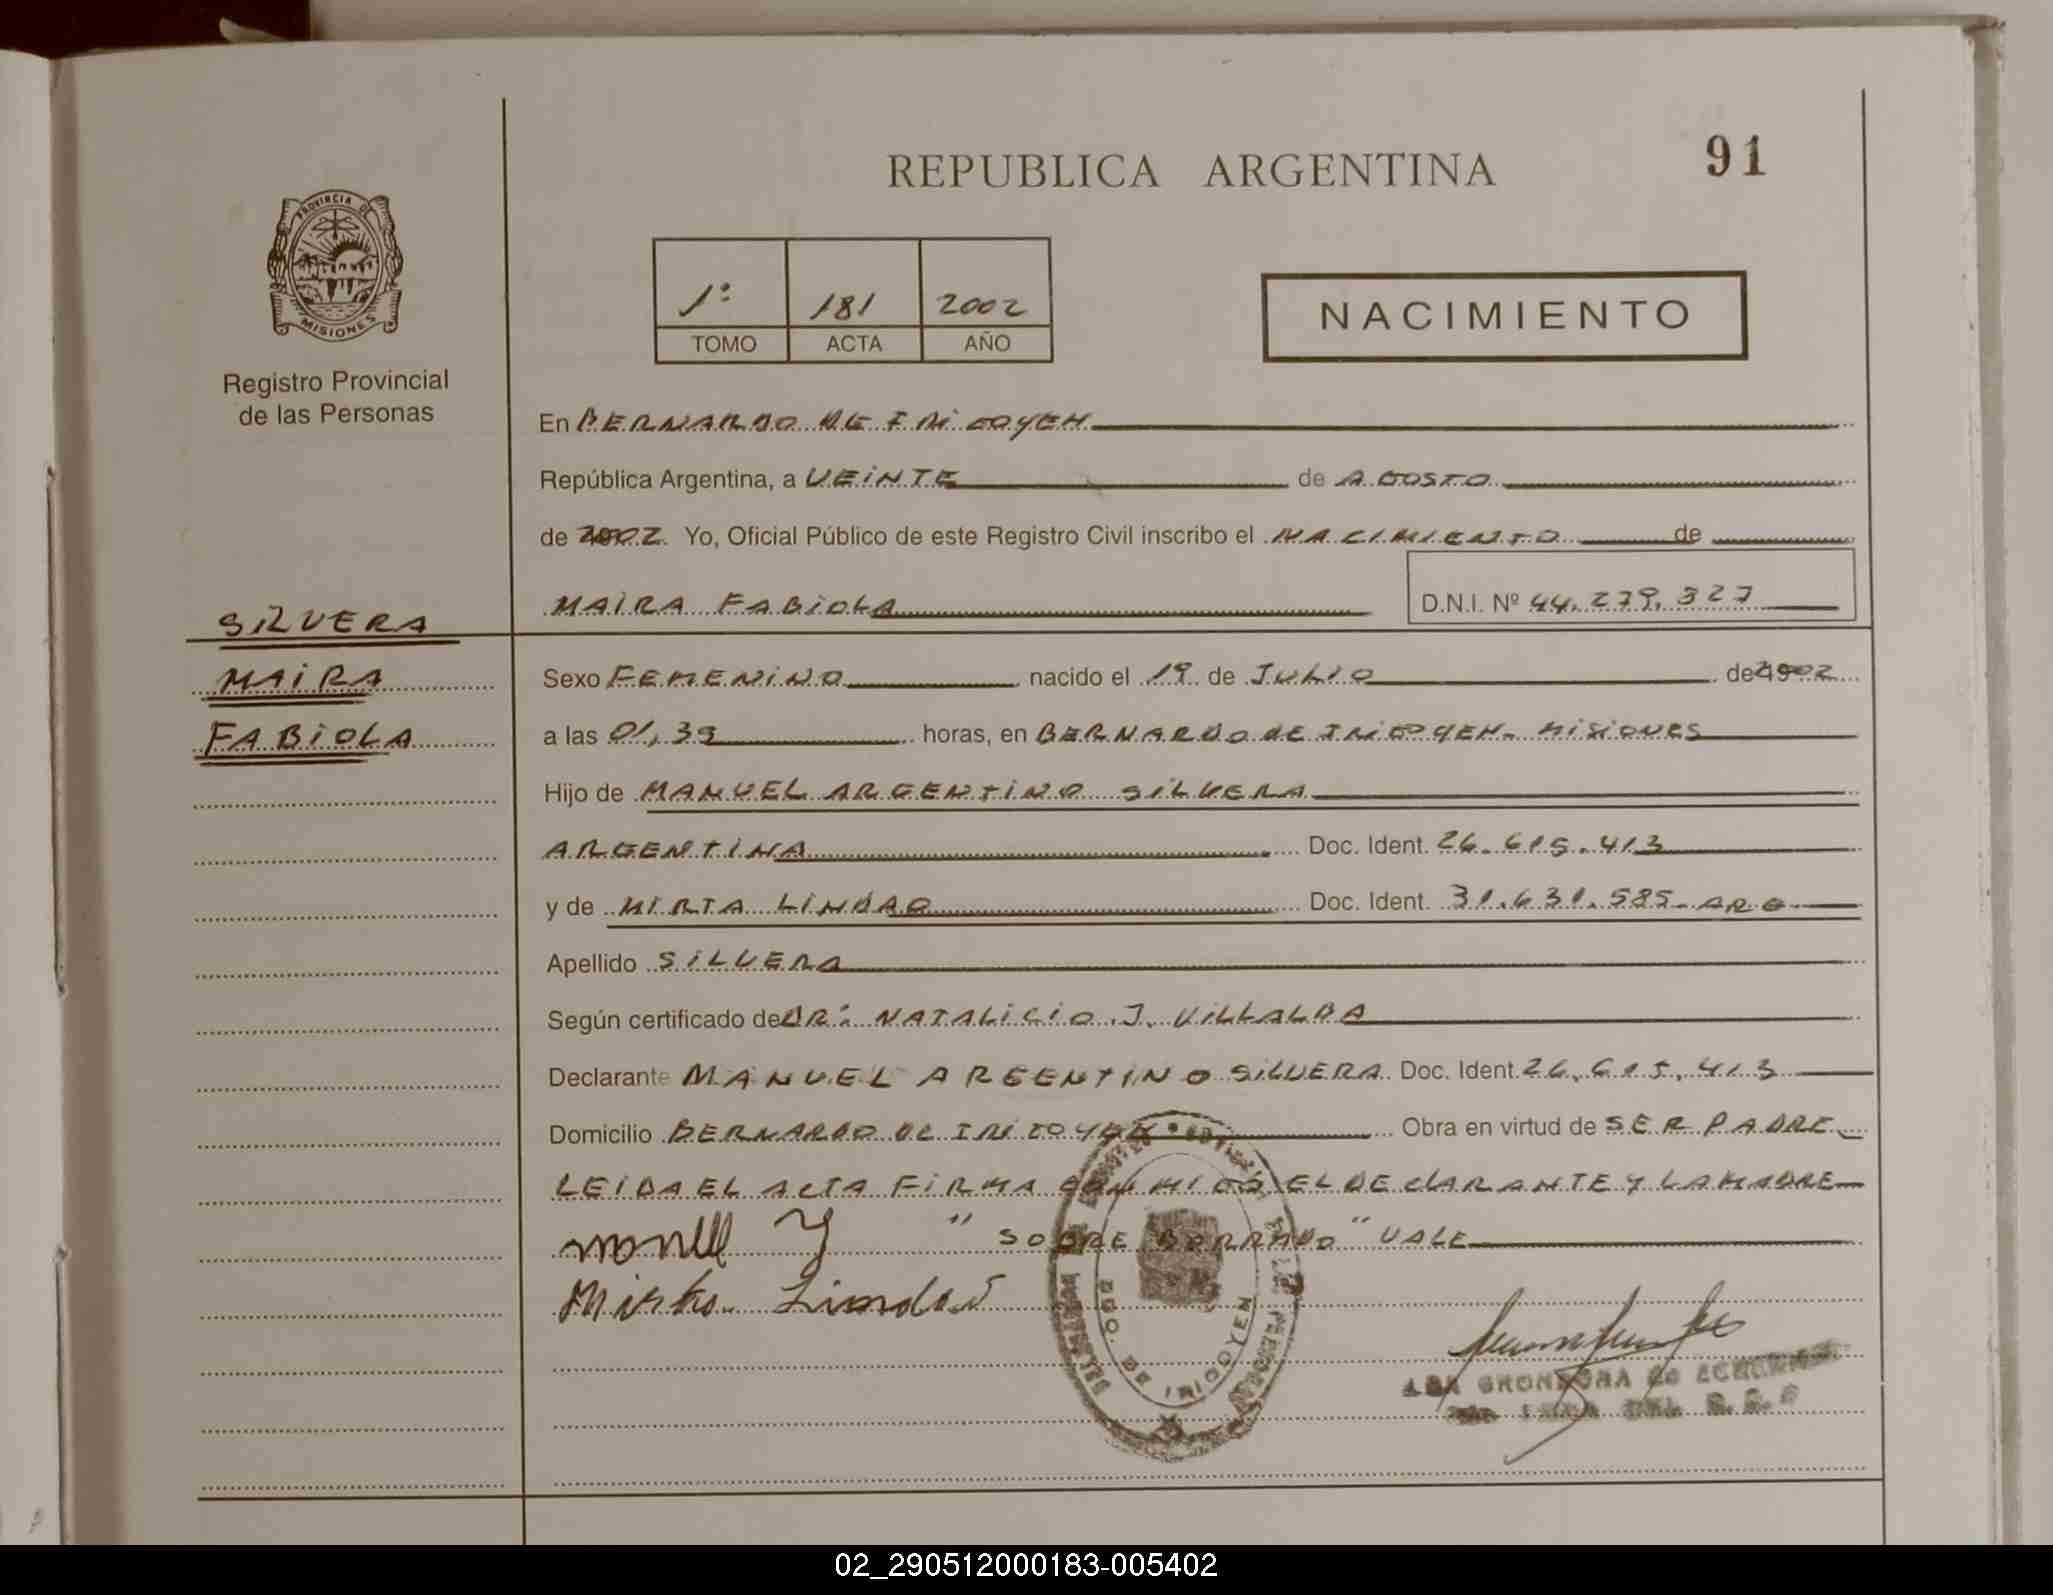 REPUBLICA ARGENTINA
91
PROVINCIA DE
MISIONES
Registro Provincial
de las Personas
1º 181 2002
TOMO ACTA AÑO
NACIMIENTO
En BERNARDO DE IRIGOYEN
República Argentina, a VEINTE de AGOSTO
de 2002. Yo, Oficial Público de este Registro Civil inscribo el NACIMIENTO de
MAIRA FABIOLA D.N.I. Nº 44.279.327
SILVERA
MAIRA
FABIOLA
Sexo FEMENINO nacido el 19 de JULIO de 2002
a las 01,39 horas, en BERNARDO DE IRIGOYEN. MISIONES
Hijo de MANUEL ARGENTINO SILVERA
ARGENTINA Doc. Ident. 26.615.413
y de MIRTA LINDAO Doc. Ident. 31.631.585. ARG.
Apellido SILVERA
Según certificado de DR: NATALICIO J. VILLALBA
Declarante MANUEL ARGENTINO SILVERA Doc. Ident. 26.615.413
Domicilio BERNARDO DE IRIGOYEN Obra en virtud de SER PADRE
LEIDA EL ACTA FIRMA CONMIGO EL DECLARANTE Y LA MADRE
" SOBRE BORRADO" VALE
Mirta Lindao
BDO. DE IRIGOYEN
02_290512000183-005402